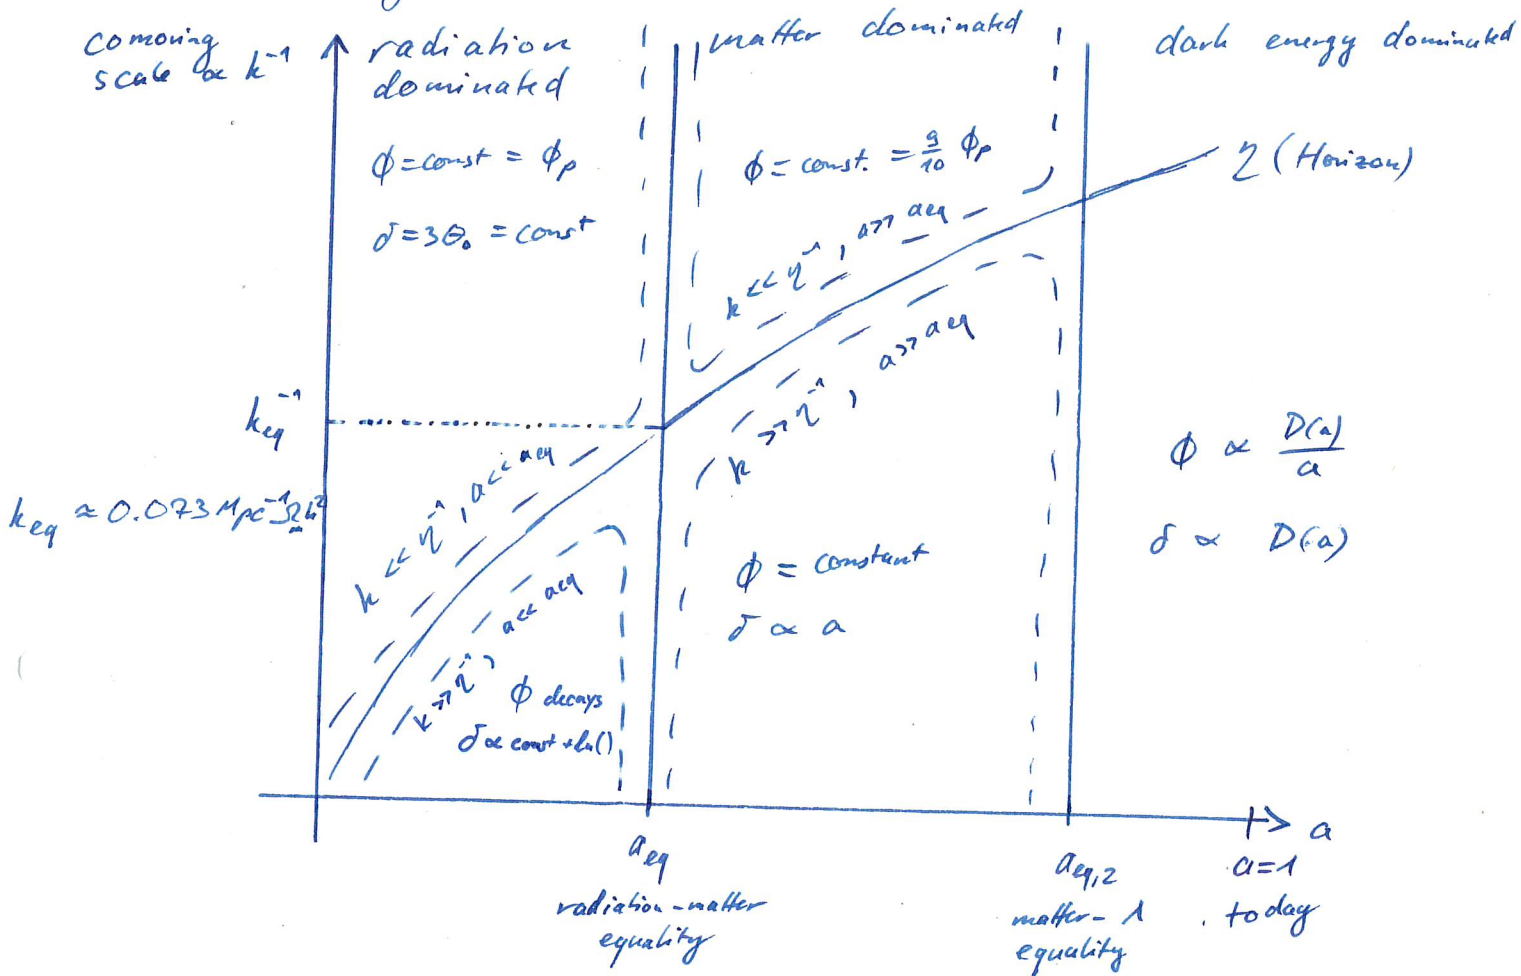 comoving
scale ∝ k⁻¹
radiation
dominated
ϕ = const = ϕₚ
δ = 3Θ₀ = const
matter dominated
ϕ = const. = 9/10 ϕₚ
dark energy dominated
η (Horizon)
k << η⁻¹, a >> a_eq
k >> η⁻¹, a >> a_eq
k_eq⁻¹
k_eq ≈ 0.073 Mpc⁻¹ Ωₘh²
k << η⁻¹, a << a_eq
k >> η⁻¹, a << a_eq
ϕ decays
δ ∝ const + ln()
ϕ = constant
δ ∝ a
ϕ ∝ D(a)/a
δ ∝ D(a)
a
a_eq
radiation-matter
equality
a_eq,2
matter-Λ
equality
a=1
today